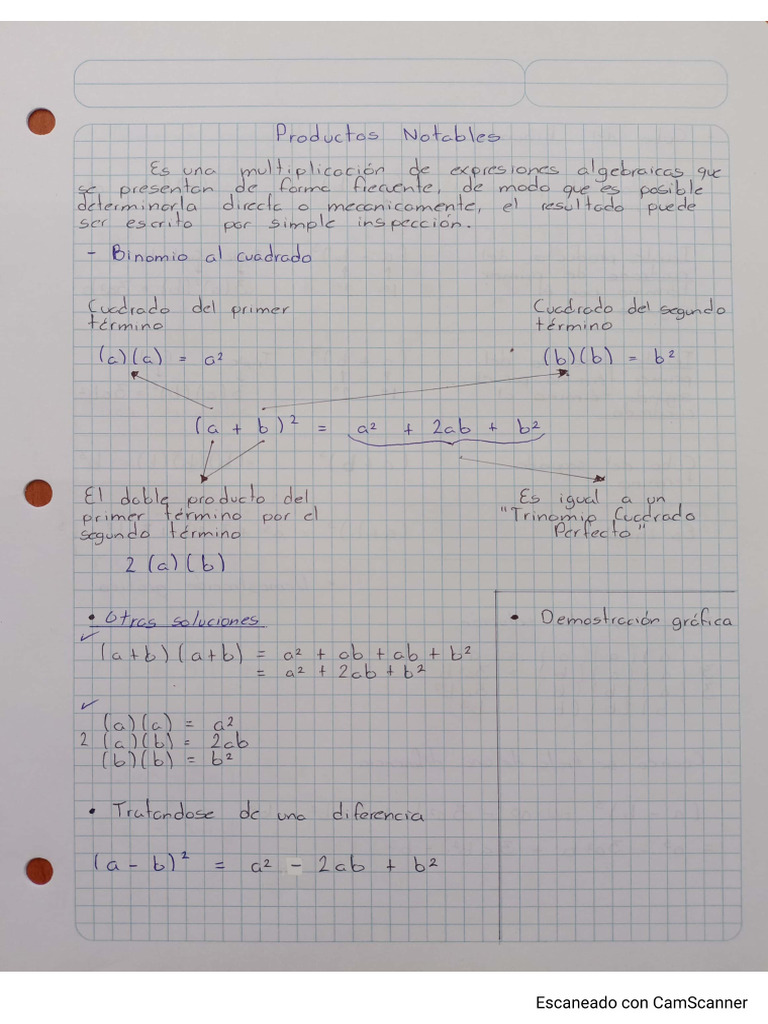 Productos Notables
Es una multiplicación de expresiones algebraicas que
se presentan de forma fiecuente, de modo que es posible
determinarla directa o mecanicamente, el resultado puede
ser escrito por simple inspección.
- Binomio al cuadrado
Cuadrado del primer
término
(a)(a) = a²
Cuadrado del segundo
término
(b)(b) = b²
(a + b)² = a² + 2ab + b²
El doble producto del
primer término por el
segundo término
2 (a)(b)
Es igual a un
"Trinomio Cuadrado
Perfecto"
• Otras soluciones
✓
(a+b)(a+b) = a² + ab + ab + b²
= a² + 2ab + b²
✓
(a)(a) = a²
2 (a)(b) = 2ab
(b)(b) = b²
• Demostración gráfica
• Tratandose de una diferencia
(a - b)² = a² - 2ab + b²
Escaneado con CamScanner